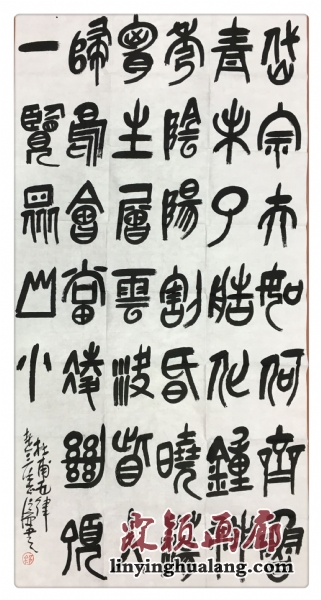 岱宗夫如何齊魯
青未了造化鐘神
秀陰陽割昏曉蕩
胷生層雲決眥入
歸鳥會當凌絕頂
一覽眾山小
杜甫
霖颖画廊
linyinghualang.com